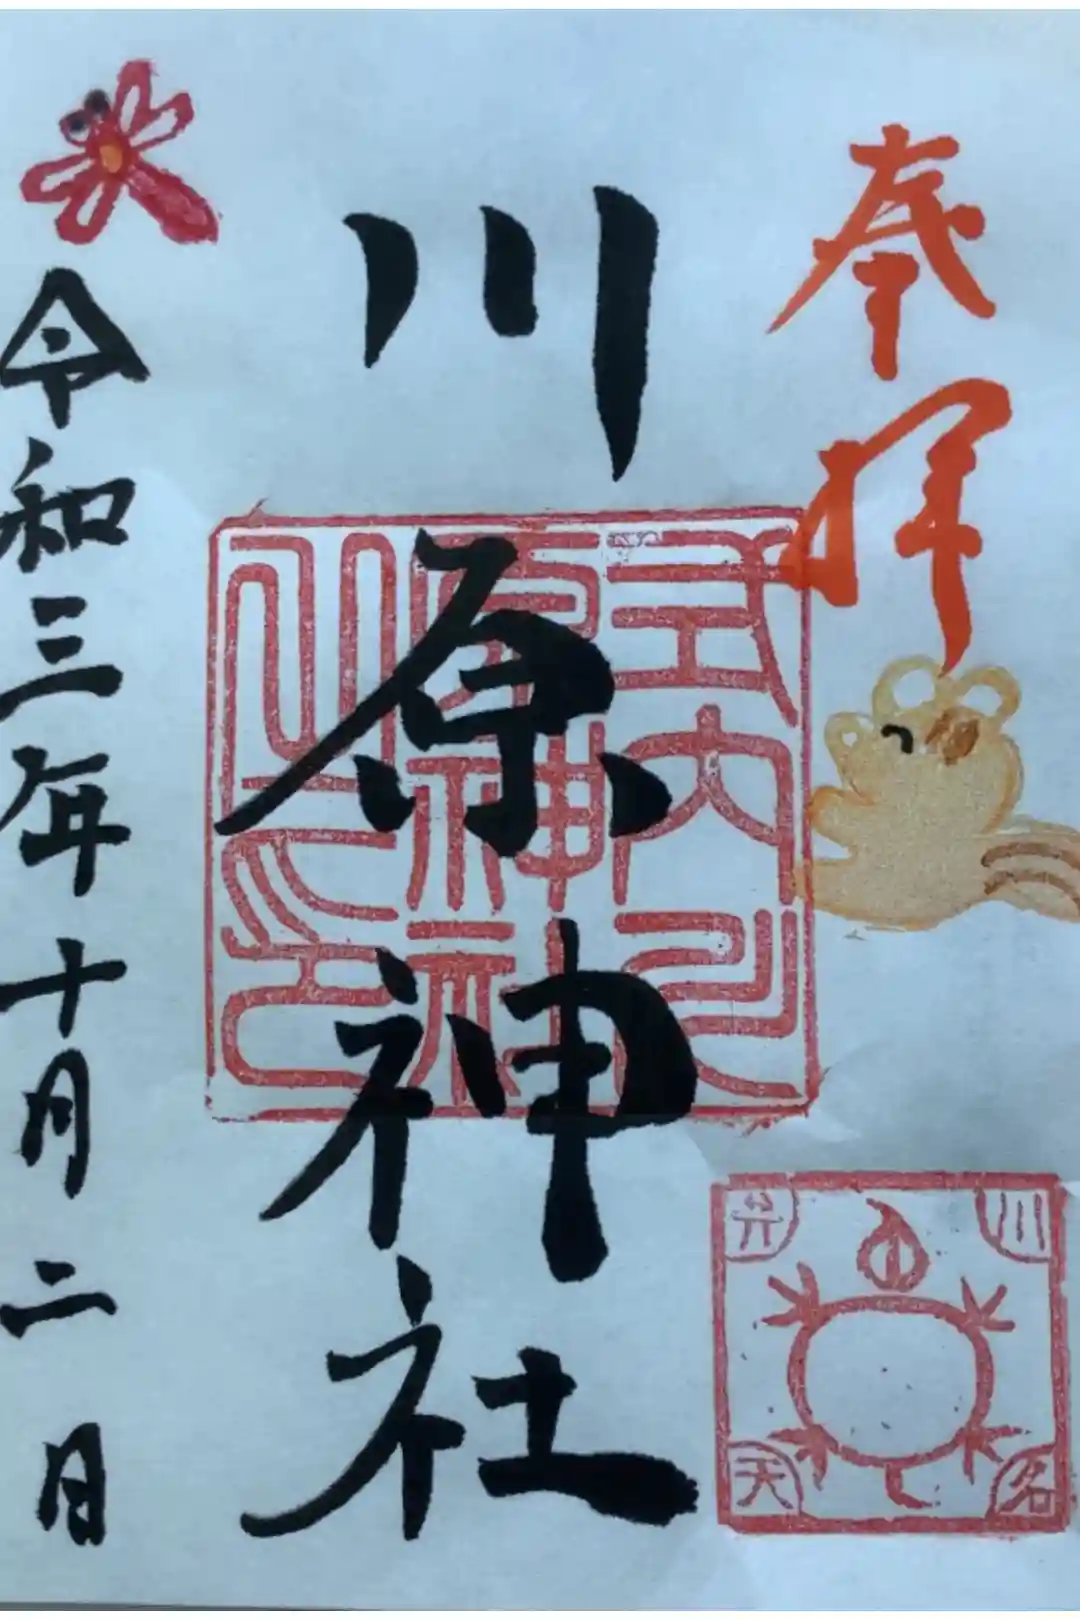 奉拝
川原神社
式内川
原神社
之印
川名
弁天
令和三年十月二日